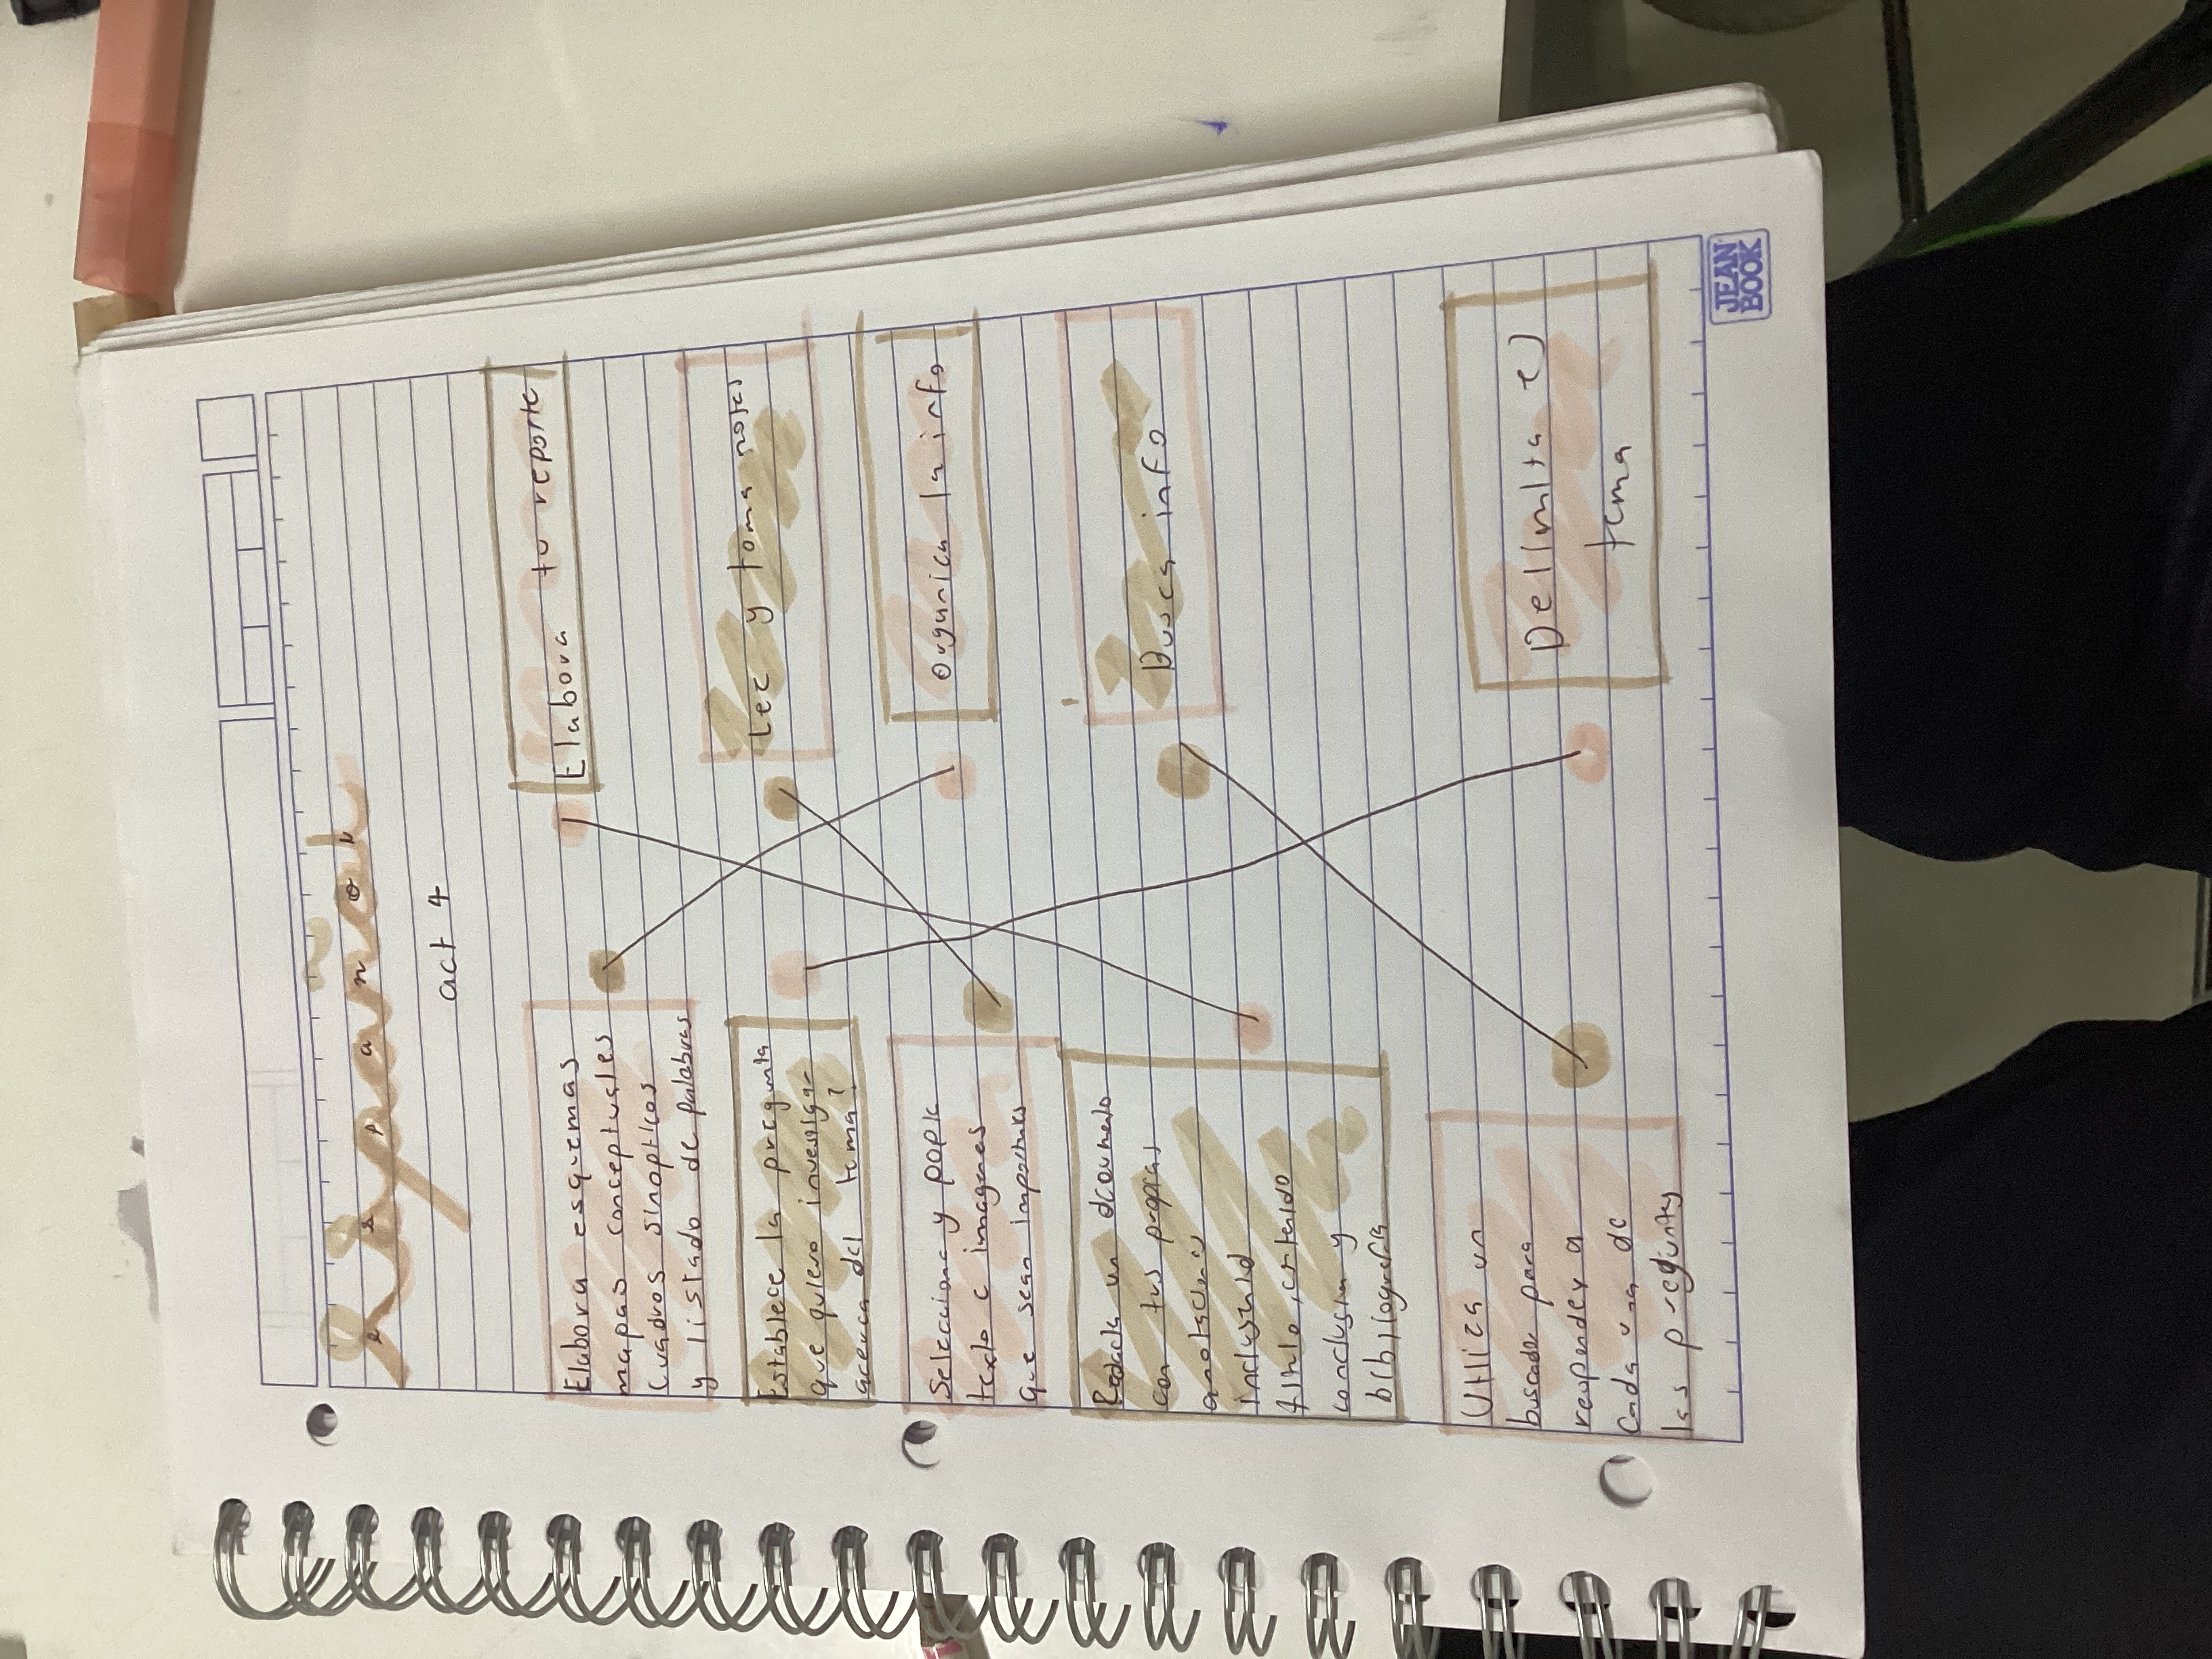 Español
act 4
Elabora esquemas
mapas conceptuales
Cuadros sinopticos
y listado de palabras
Establece la pregunta
que quiero investigar
acerca del tema?
Selecciona y
texto e imagenes
que sean
Redacta un
con tus propias
incluyendo
titulo, contenido
conclusion y
bibliografia
Utiliza un
buscador para
responder a
Cada una de
las preguntas
Elabora tu reporte
Lee y toma notas
Organiza la info
Busca info
Delimita el
tema
JEAN
BOOK